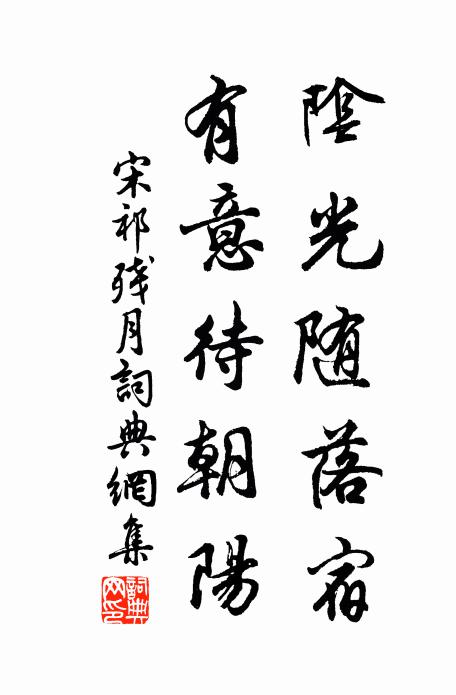 陰光随落宿
有意待朝陽
宋祁殘月詞典網集
詞典网印